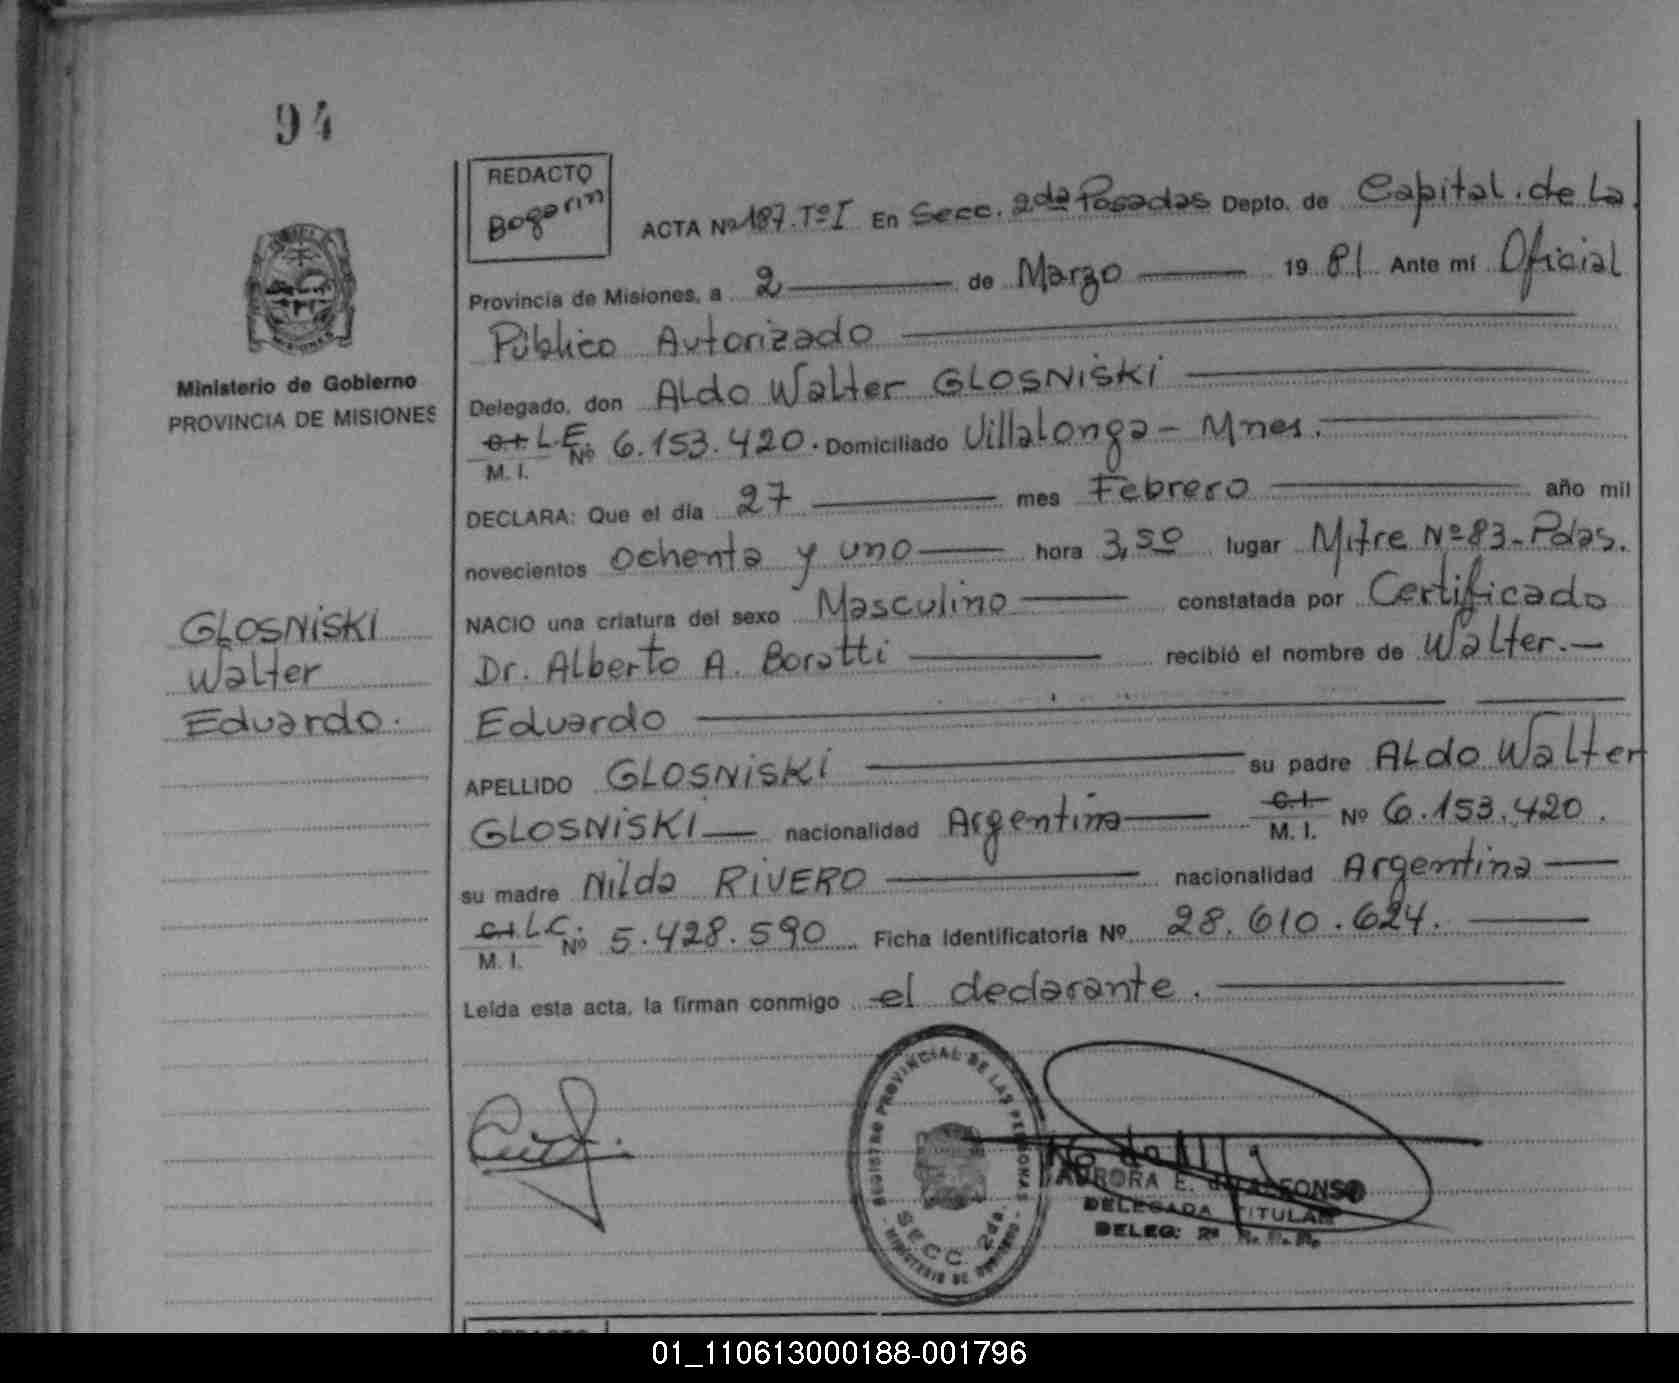 94
REDACTO
Bogarin
ACTA Nº 187.TºI En Secc. 2da Posadas Depto. de Capital. de La
Provincia de Misiones, a 2 de Marzo 19 81 Ante mí Oficial
Público Autorizado
Ministerio de Gobierno
PROVINCIA DE MISIONES
Delegado, don Aldo Walter GLOSNISKI
C.I. L.E. Nº 6.153.420. Domiciliado Villalonga - Mnes.
M. I.
DECLARA: Que el día 27 mes Febrero año mil
novecientos Ochenta y uno hora 3,50 lugar Mitre Nº 83 - Pdas.
NACIO una criatura del sexo Masculino constatada por Certificado
GLOSNISKI
Walter
Eduardo.
Dr. Alberto A. Boratti recibió el nombre de Walter.-
Eduardo
APELLIDO GLOSNISKI su padre Aldo Walter
GLOSNISKI nacionalidad Argentina C.I. M. I. Nº 6.153.420.
su madre Nilda RIVERO nacionalidad Argentina
C.I. L.C. Nº 5.428.590 Ficha Identificatoria Nº 28.610.624.
M. I.
Leída esta acta, la firman conmigo el declarante.
REGISTRO PROVINCIAL DE LAS PERSONAS
SECC. 2da.
MINISTERIO DE GOBIERNO
AURORA E. de ALFONSO
DELEGADA TITULAR
DELEG: 2ª R. P. P.
REDACTO
01_110613000188-001796